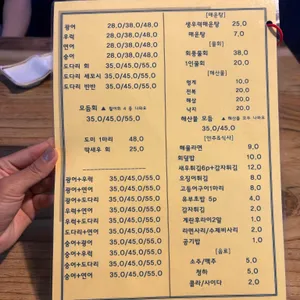 광어 28.0/38.0/48.0
우럭 28.0/38.0/48.0
연어 28.0/38.0/48.0
숭어 28.0/38.0/48.0
도다리 회 35.0/45.0/55.0
도다리 세꼬시 35.0/45.0/55.0
도다리 반반 35.0/45.0/55.0
모듬회
35.0/45.0/55.0
도미 1마리 48.0
딱새우 회 25.0
광어+우럭 35.0/45.0/55.0
광어+연어 35.0/45.0/55.0
광어+도다리 35.0/45.0/55.0
우럭+연어 35.0/45.0/55.0
우럭+도다리 35.0/45.0/55.0
도다리+연어 35.0/45.0/55.0
숭어+광어 35.0/45.0/55.0
숭어+우럭 35.0/45.0/55.0
숭어+연어 35.0/45.0/55.0
숭어+도다리 35.0/45.0/55.0
[매운탕]
생우럭매운탕 25.0
매운탕 7.0
[물회]
회물회 38.0
1인물회 20.0
[해산물]
멍게 20.0
전복 20.0
해삼 20.0
낙지 20.0
해산물 모듬
35.0/45.0/55.0
[안주&식사]
해물라면 9.0
회덮밥 10.0
새우튀김6p+감자튀김 12.0
오징어튀김 10.0
고등어구이1마리 10.0
유부초밥 5p 4.0
감자튀김 2.0
계란후라이2알 1.0
라면사리/수제비사리 2.0
공기밥 1.0
[음료]
소주/맥주 5.0
청하 5.0
콜라/사이다 2.0